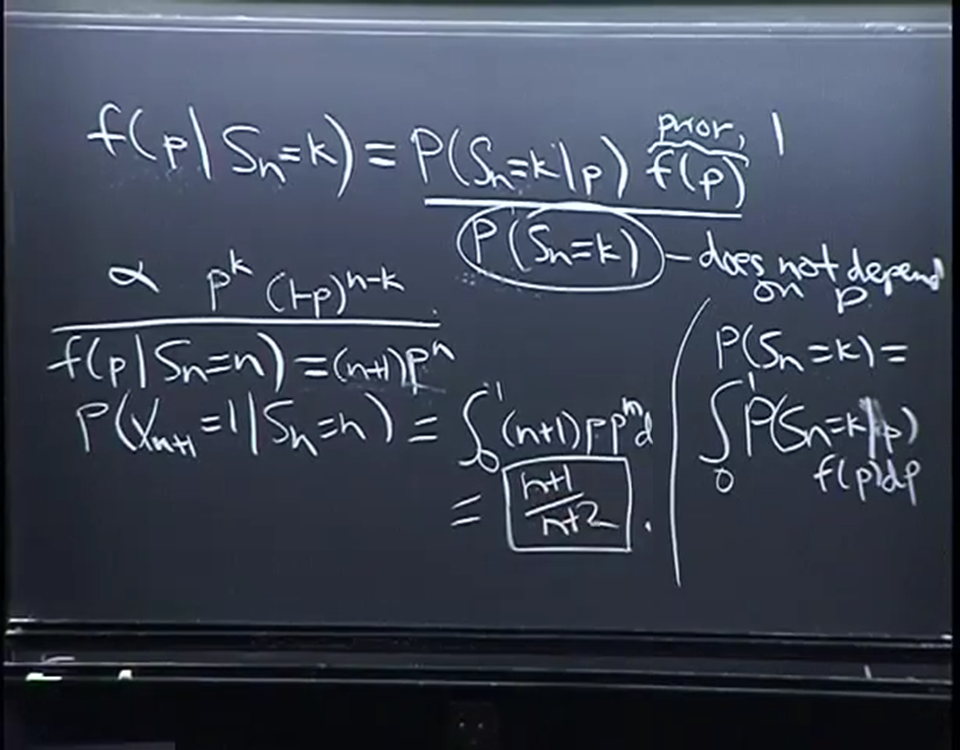 prior, 1
f(p|Sn=k) = P(Sn=k|p) f(p)
P(Sn=k) - does not depend on p
∝ p^k (1-p)^n-k
f(p|Sn=n) = (n+1)p^n
P(Xn+1=1|Sn=n) = ∫₀¹ (n+1)p p^n d
= n+1/n+2 .
P(Sn=k) =
∫₀¹ P(Sn=k|p)
f(p)dp